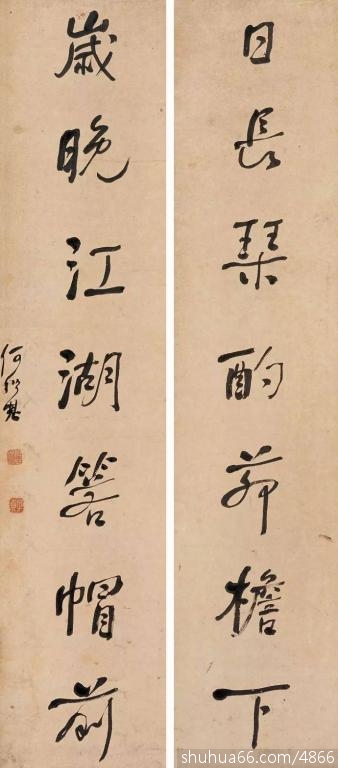 日長琹酌茆檐下
歲晚江湖箬帽前
何紹基
shuhua66.com/4866